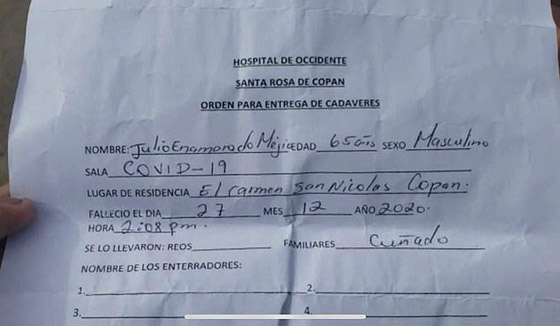 HOSPITAL DE OCCIDENTE
SANTA ROSA DE COPAN
ORDEN PARA ENTREGA DE CADAVERES
NOMBRE: Julio Enamorado Mejia EDAD 65 años SEXO Masculino
SALA COVID-19
LUGAR DE RESIDENCIA El Carmen San Nicolas Copan.
FALLECIO EL DIA 27 MES 12 AÑO 2020.
HORA 2:08 pm.
SE LO LLEVARON: REOS FAMILIARES Cuñado
NOMBRE DE LOS ENTERRADORES:
1. 2.
3. 4.